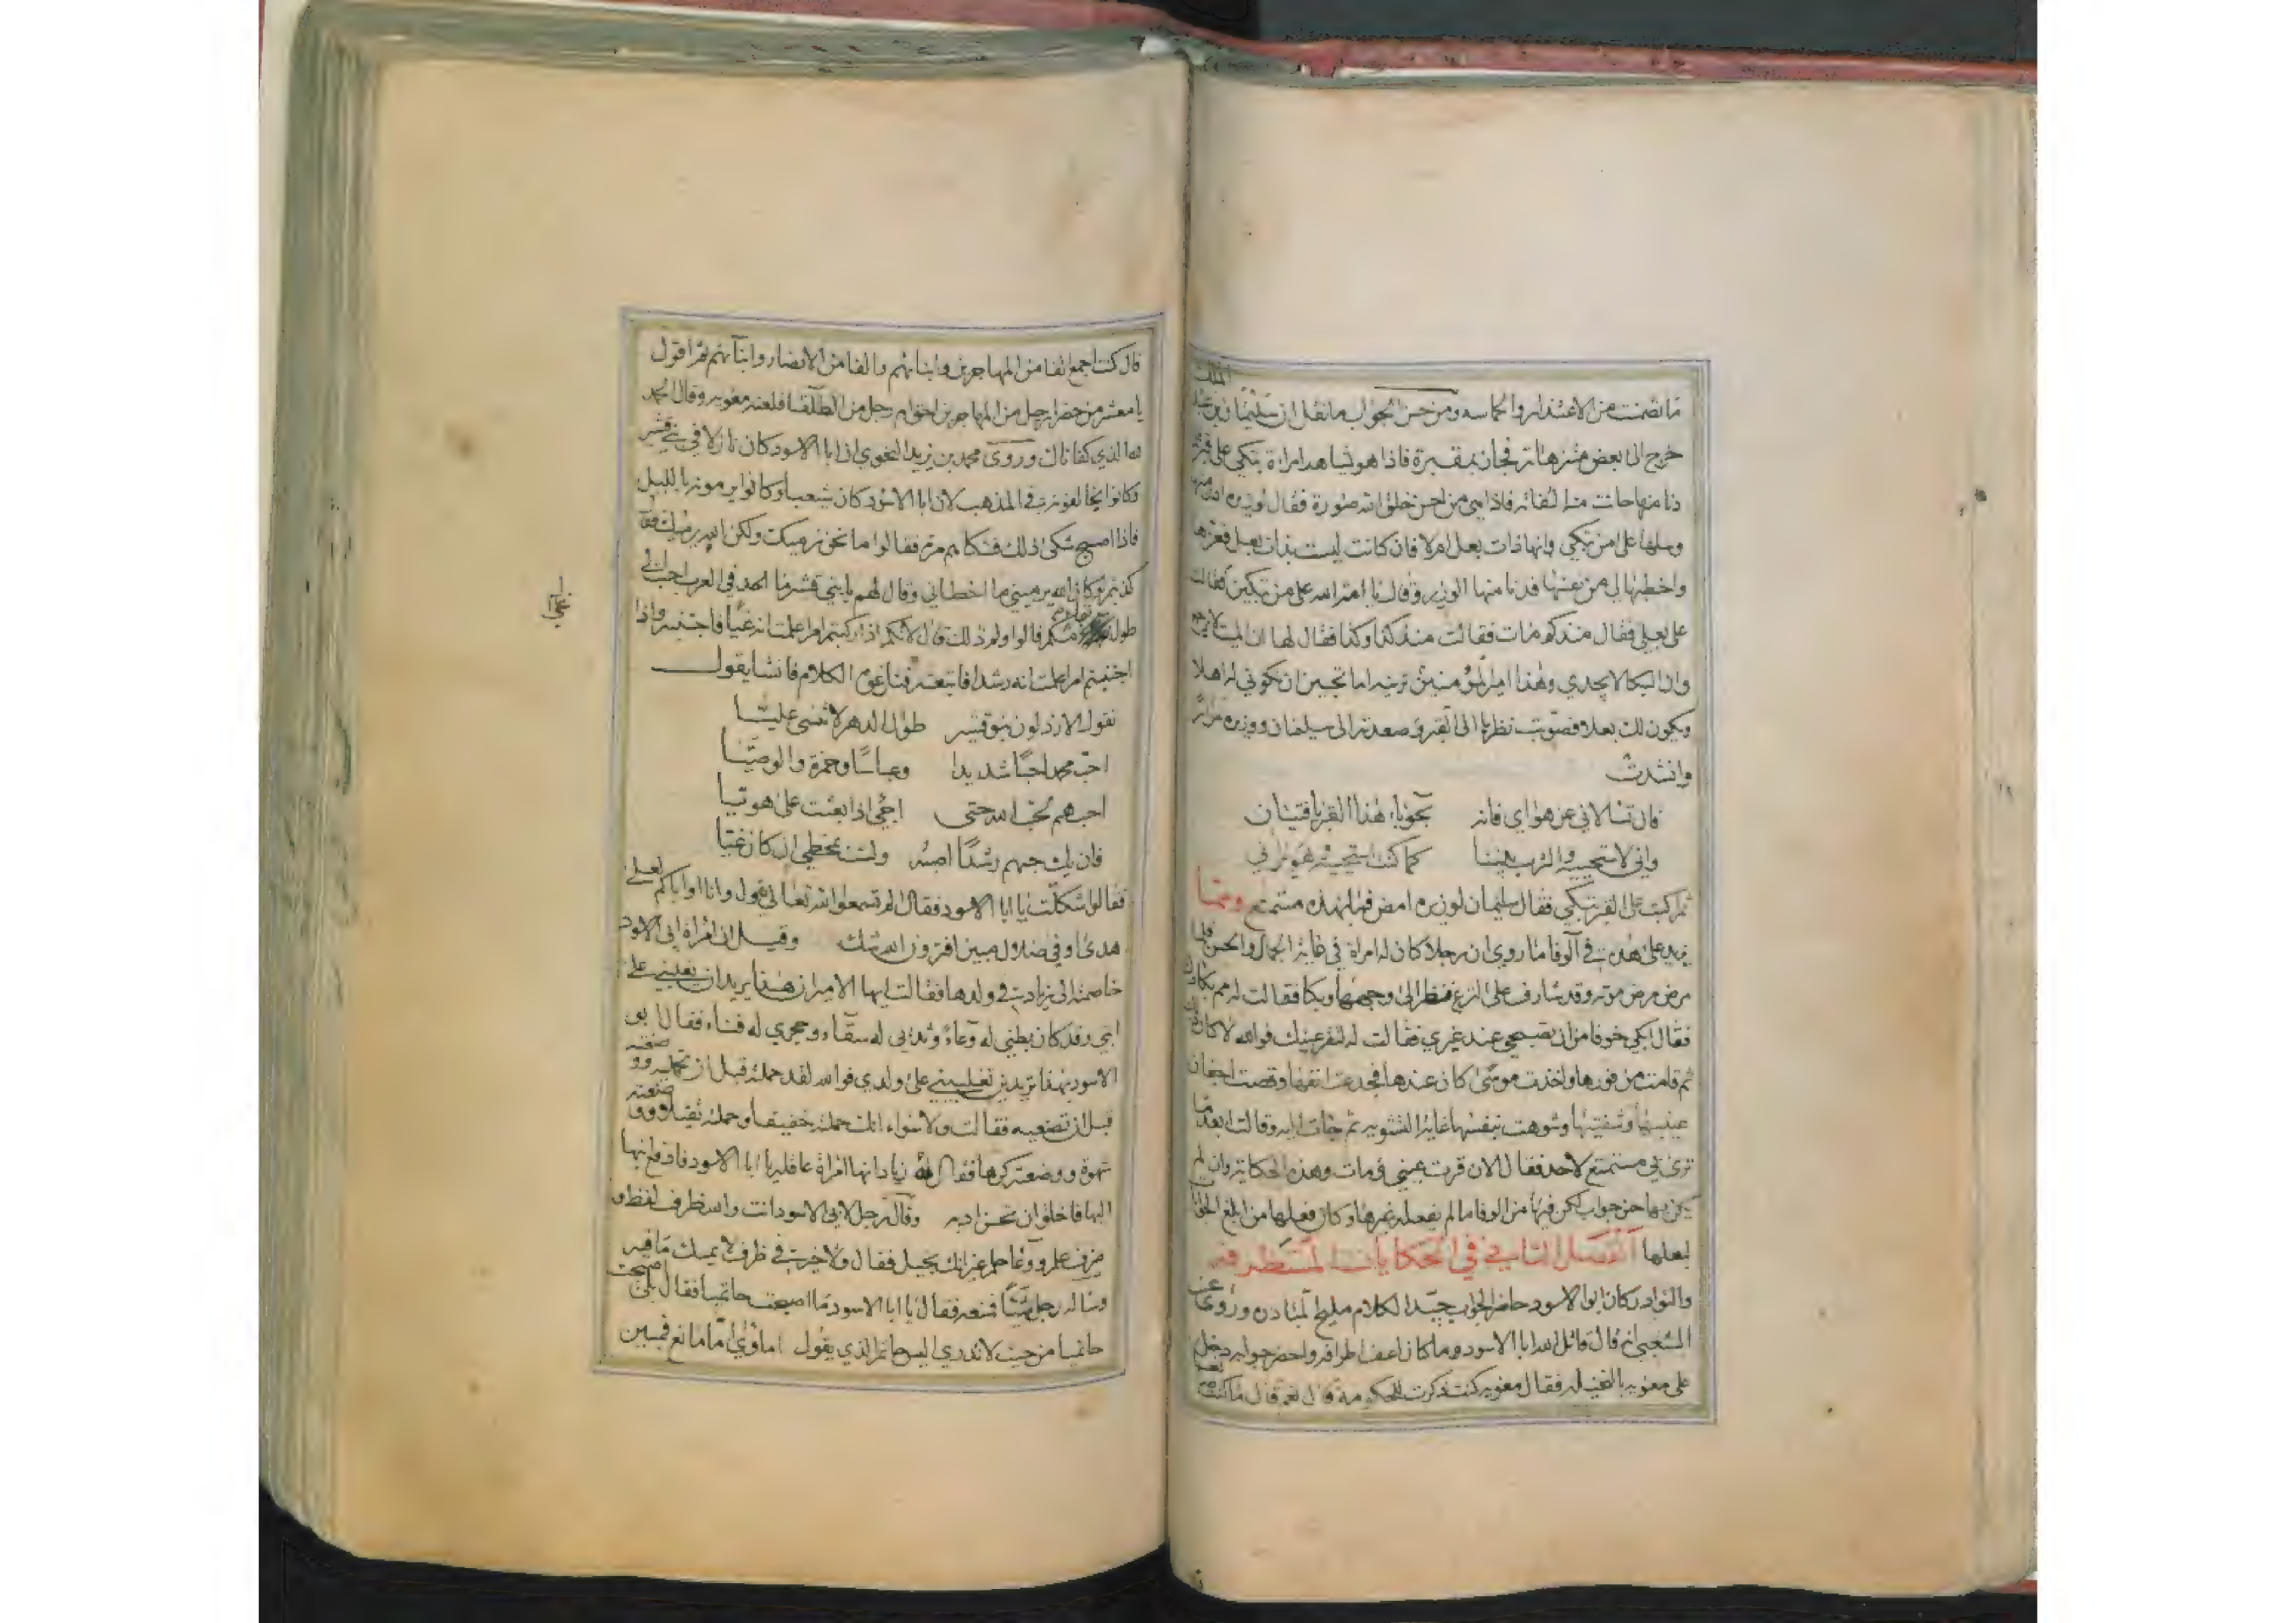 ما تضمنت من الاعتذار والحماسه ومن حسن الجواب ما نقل ان سليمان بن عبد الملك
خرج الى بعض متنزهاته فجاز بمقبرة فاذا هو بشاهد امراة تبكي على قبر
دنا منها حانت منه التفاته فاذا هي من احسن خلق الله صورة فقال لوزيره ادن منها
وسلها على من تبكي وانها ذات بعل ام لا فان كانت ليست بذات بعل
واخطبها لي من نفسها فدنا منها الوزير وقال يا امة الله على من تبكين فقالت
على بعلي فقال منذ كم مات فقالت منذ كذا وكذا فقال لها ان الميت لا يرجع
وان البكا لا يجدي وهذا امير المؤمنين ترينه اما تحبين ان تكوني له اهلا
ويكون لك بعلا فصوبت نظرها الى القبر وصعدته الى سليمان ووزيره
وانشدت
فان تسالاني عن هواي فانه بحوباء هذا القبر يا فتيان
واني لاستحييه والترب بيننا كما كنت استحييه وهو يراني
ثم اكبت على القبر تبكي فقال سليمان لوزيره امض فما لهذه مستمتع ومما
يزيد على هذه في الوفا ما روي ان رجلا كان له امراة في غاية الجمال والحسن فلما
مرض مرض موته وقد شارف على النزع فنظر الى وجهها وبكا فقالت له مم بكاوك
فقال ابكي خوفا من ان تصبحي عند غيري فقالت له لتقر عينيك فوالله لا كان
ثم قامت من فورها واخذت موسى كان عندها فجدعت انفها وقصت اجفان
عينيها وشفتيها وشوهت بنفسها غاية التشويه ثم جات اليه وقالت ابعد ما
ترى في مستمتع لاحد فقال الان قرت عيني ومات وهذه الحكاية وان لم
يكن بها حسن جواب لكن فيها من الوفا ما لم يفعله غيرها وكان فعلها من ابلغ
لبعلها الفصل الثاني في الحكايات المستظرفه
والنوادر كان ابو الاسود حاضر الجواب جيد الكلام مليح النادرة وروى عن
الشعبي انه قال قاتل الله ابا الاسود وما كان اعف اطرافه واحضر جوابه دخل
على معويه بالنخيله فقال معويه كنت ذكرت للحكومة قال نعم قال ما كنت
قال كنت اجمع الفا من المهاجرين وابنائهم والفا من الانصار وابنائهم ثم اقول
يا معشر من حضر ارجل من المهاجرين احق ام رجل من الطلقا فلعنه معويه وقال الحمد
لله الذي كفاناك وروى محمد بن يزيد النحوي ان ابا الاسود كان نازلا في بني قشير
وكانوا يخالفونه في المذهب لان ابا الاسود كان شيعيا وكانوا يرمونه بالليل
فاذا اصبح شكى ذلك فشكاهم مره فقالوا ما نحن نرميك ولكن الله يرميك فقال
كذبتم لو كان الله يرميني ما اخطاني وقال لهم يا بني قشير ما احد في العرب احب الي
طول بقاء منكم قالوا ولم ذلك قال لانكم اذا ركبتم امرا علمت انه غيا فاجتنبه واذا
اجتنبتم امرا علمت انه رشدا فاتبعته فنازعوه الكلام فانشا يقول
نقول الارذلون بنو قشير طوال الدهر لا تنسى عليا
احب محمدا حبا شديدا وعباسا وحمزة والوصيا
احبهم لحب الله حتى اجي اذا بعثت على هويا
فان يك حبهم رشدا اصبه ولست بمخطي ان كان غيا
فقالوا شككت يا ابا الاسود فقال الم تسمعوا الله تعالى يقول وانا او اياكم لعلى
هدى او في ضلال مبين افترون الله شك وقيل ان امراة ابي الاسود
خاصمته الى زياد في ولدها فقالت ايها الامير ان هذا يريد ان يغلبني على
ابني وقد كان بطني له وعاء وثديي له سقاء وحجري له فناء فقال ابو
الاسود بهذا تريدين تغلبيني على ولدي فوالله لقد حملته قبل ان تحمليه ووضعته
قبل ان تضعيه فقالت ولا سواء انك حملته خفيفا وحملته ثقيلا ووضعته
شهوة ووضعته كرها فقال له زياد انها امراة عاقله يا ابا الاسود فادفع ابنها
اليها فاخلق ان تحسن ادبه وقال رجل لابي الاسود انت والله ظرف لفظ و
ظرف علم ووعا حلم غير انك بخيل فقال ولا خير في ظرف لا يمسك ما فيه
وساله رجل شيئا فمنعه فقال يا ابا الاسود ما اصبحت حاتميا فقال بلى اصبحت
حاتميا من حيث لا تدري اليس حاتم الذي يقول اماوي اما مانع فمبين